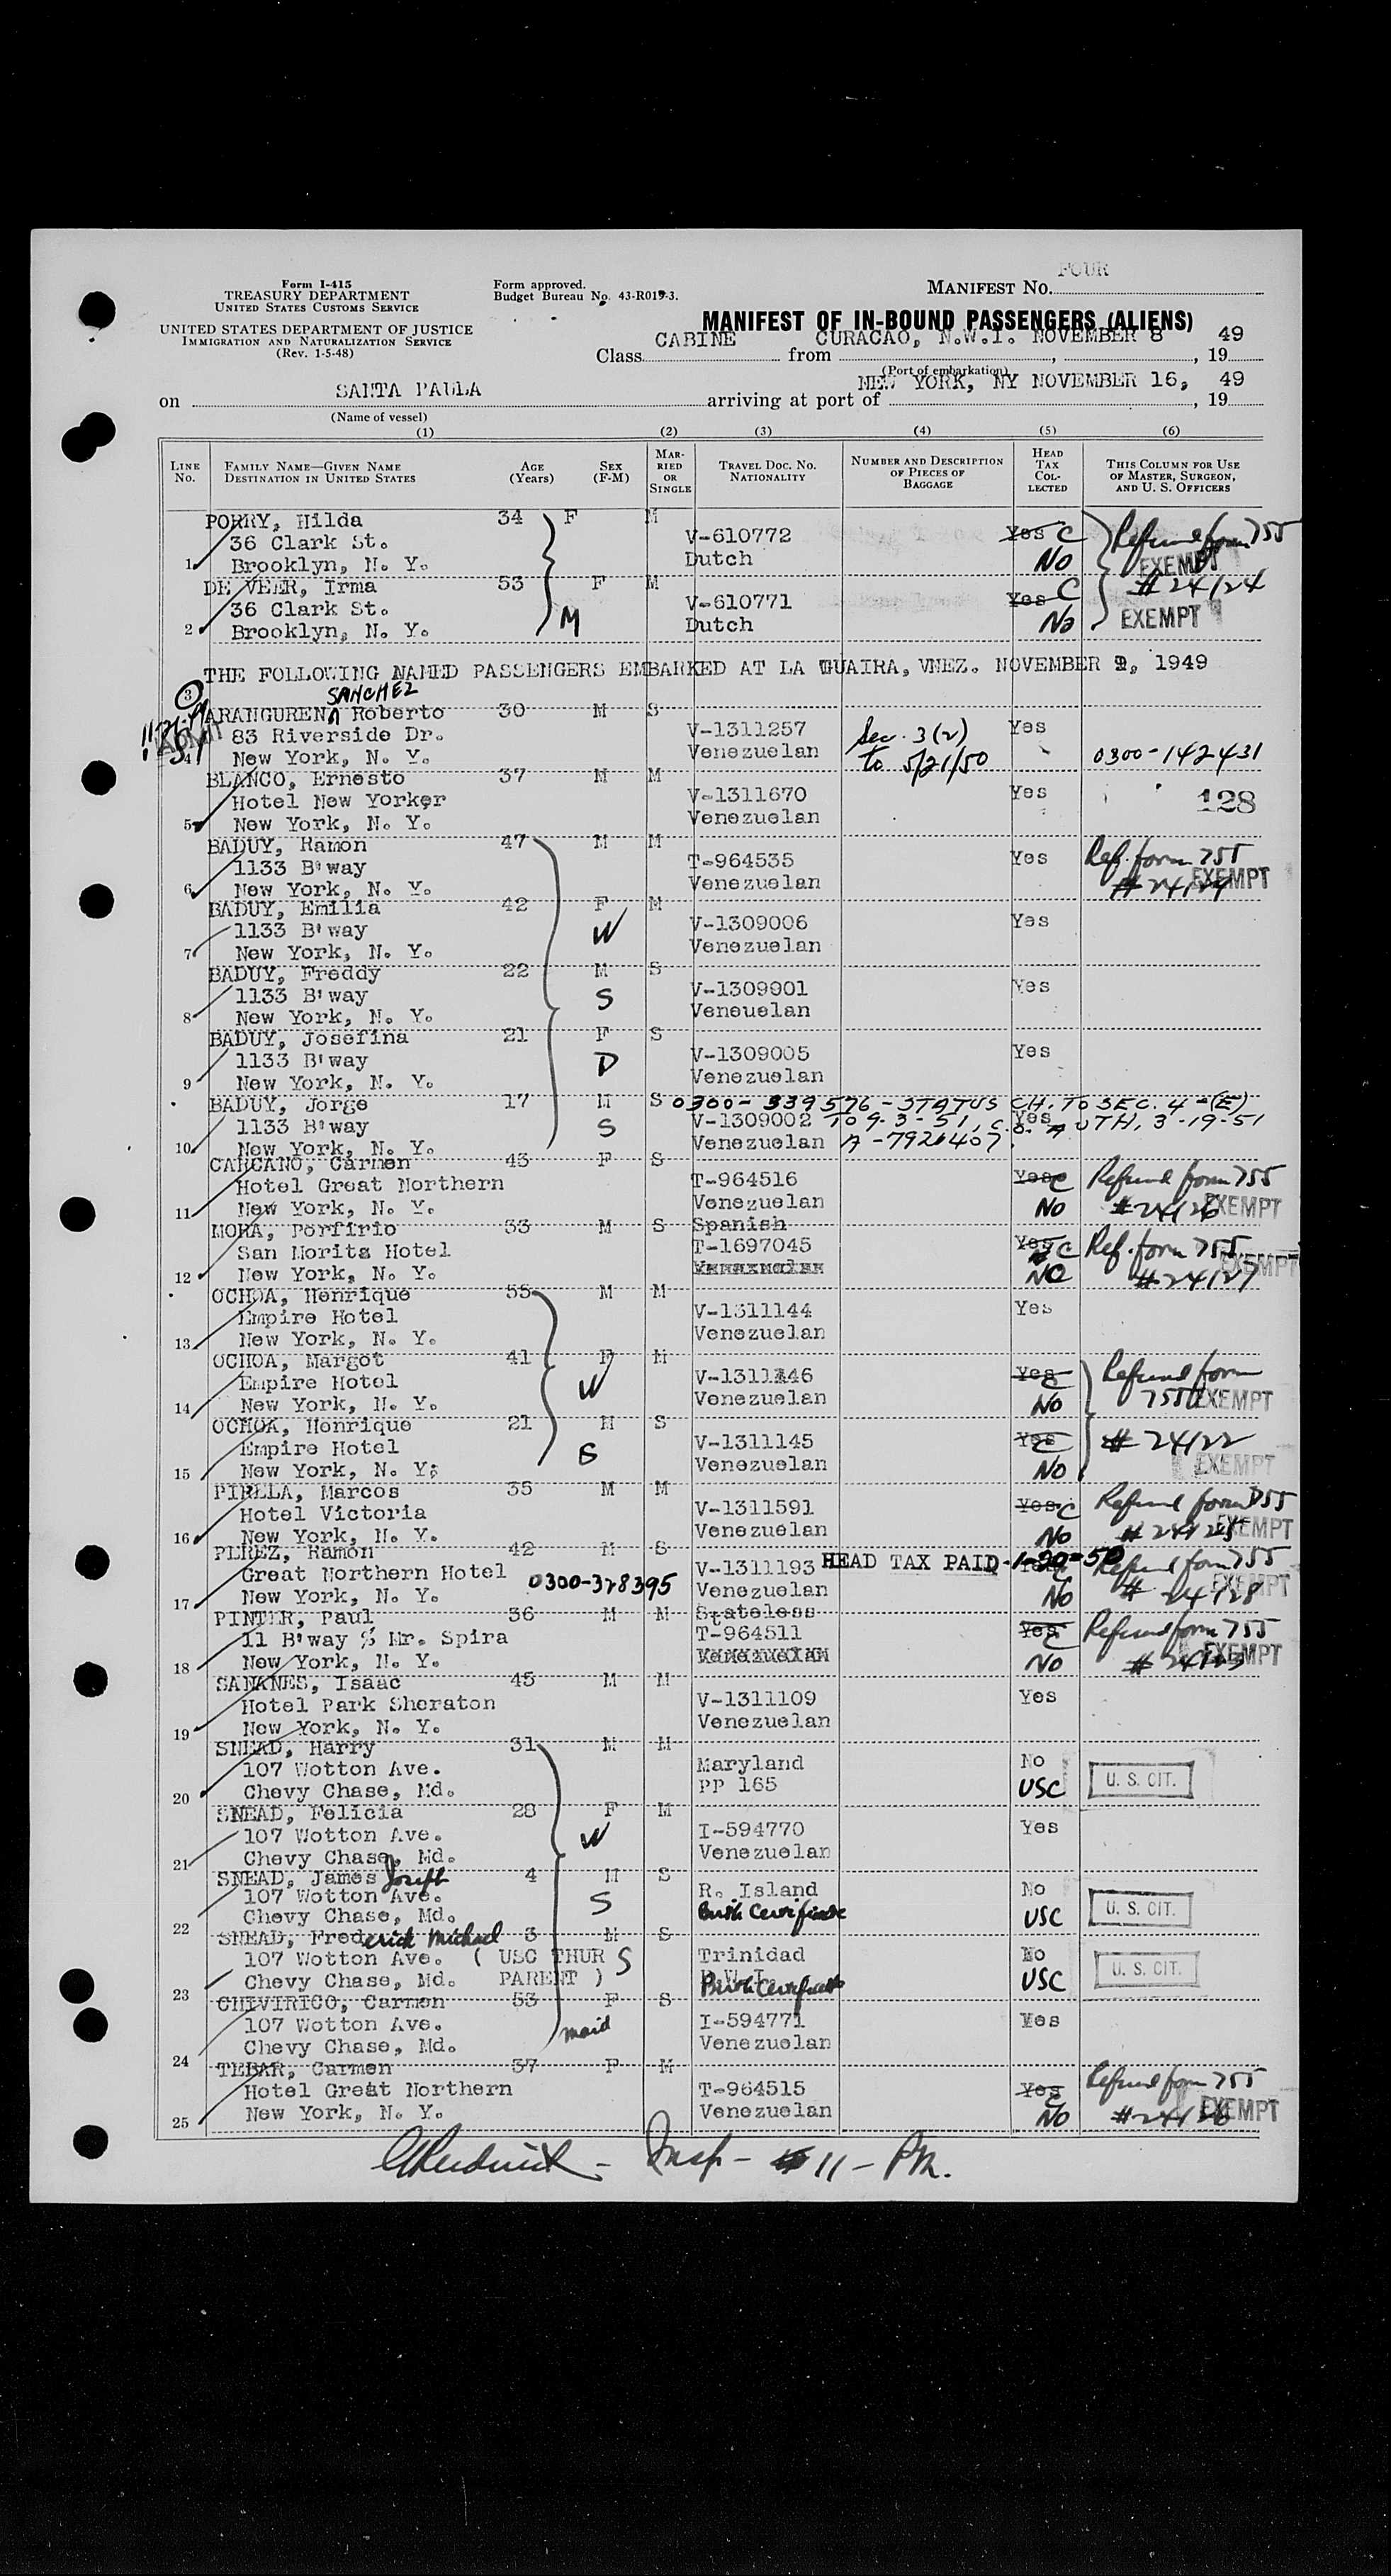 FOUR
Form I-415
TREASURY DEPARTMENT
UNITED STATES CUSTOMS SERVICE
Form approved.
Budget Bureau No. 43-R019-3.
MANIFEST NO.
UNITED STATES DEPARTMENT OF JUSTICE
IMMIGRATION AND NATURALIZATION SERVICE
(Rev. 1-5-48)
MANIFEST OF IN-BOUND PASSENGERS (ALIENS)
Class CABINE from CURACAO, N.W.I. NOVEMBER 8, 19 49
(Port of embarkation)
on SANTA PAULA arriving at port of NEW YORK, NY NOVEMBER 16, 19 49
(Name of vessel)
(1) (2) (3) (4) (5) (6)
LINE NO. FAMILY NAME—GIVEN NAME DESTINATION IN UNITED STATES AGE (YEARS) SEX (F-M) MARRIED OR SINGLE TRAVEL DOC. NO. NATIONALITY NUMBER AND DESCRIPTION OF PIECES OF BAGGAGE HEAD TAX COLLECTED THIS COLUMN FOR USE OF MASTER, SURGEON, AND U. S. OFFICERS
PORRY, Hilda 34 F M
36 Clark St. V-610772 Yes C Refund form 755
1 Brooklyn, N. Y. Dutch No EXEMPT
DE VEER, Irma 53 F M C # 24124
36 Clark St. V-610771 Yes
2 Brooklyn, N. Y. M Dutch No EXEMPT
THE FOLLOWING NAMED PASSENGERS EMBARKED AT LA GUAIRA, VNEZ. NOVEMBER 9, 1949
3 SANCHEZ
ARANGUREN, Roberto 30 M S
ADMIT 83 Riverside Dr. V-1311257 Sec. 3(2) Yes
4 New York, N. Y. Venezuelan to 5/21/50 0300-142431
BLANCO, Ernesto 37 M M
Hotel New Yorker V-1311670 Yes 128
5 New York, N. Y. Venezuelan
BADUY, Ramon 47 M M
1133 B'way T-964535 Yes Ref. form 755
6 New York, N. Y. Venezuelan EXEMPT
BADUY, Emilia 42 F M
1133 B'way W V-1309006 Yes
7 New York, N. Y. Venezuelan
BADUY, Freddy 22 M S
1133 B'way S V-1309001 Yes
8 New York, N. Y. Veneuelan
BADUY, Josefina 21 F S
1133 B'way D V-1309005 Yes
9 New York, N. Y. Venezuelan
BADUY, Jorge 17 M S 0300-339576-STATUS CH. TO SEC. 4-(E)
1133 B'way S V-1309002 TO 9-3-51, C.O. AUTH, 3-19-51 Yes
10 New York, N. Y. Venezuelan A-7921407
CARCANO, Carmen 43 F S
Hotel Great Northern T-964516 Yes C Refund form 755
11 New York, N. Y. Venezuelan No #24126 EXEMPT
MORA, Porfirio 53 M S Spanish
San Morits Hotel T-1697045 Yes C Ref. form 755
12 New York, N. Y. NO #24127 EXEMPT
OCHOA, Henrique 55 M M
Empire Hotel V-1311144 Yes
13 New York, N. Y. Venezuelan
OCHOA, Margot 41 F M
Empire Hotel W V-1311146 Yes C Refund form
14 New York, N. Y. Venezuelan No 755 EXEMPT
OCHOA, Henrique 21 M S
Empire Hotel S V-1311145 Yes C # 24122
15 New York, N. Y; Venezuelan No EXEMPT
PIRELA, Marcos 35 M M
Hotel Victoria V-1311591 Yes C Refund form 755
16 New York, N. Y. Venezuelan No # 24125 EXEMPT
PEREZ, Ramon 42 M S
Great Northern Hotel V-1311193 HEAD TAX PAID-1-20-50 Refund form 755
17 New York, N. Y. 0300-328395 Venezuelan No # 24128 EXEMPT
PINTER, Paul 36 M M Stateless
11 B'way % Mr. Spira T-964511 Yes C Refund form 755
18 New York, N. Y. No # 24123 EXEMPT
SANANES, Isaac 45 M M
Hotel Park Sheraton V-1311109 Yes
19 New York, N. Y. Venezuelan
SNEAD, Harry 31 M M
107 Wotton Ave. Maryland No
20 Chevy Chase, Md. PP 165 USC U. S. CIT.
SNEAD, Felicia 28 F M
107 Wotton Ave. W I-594770 Yes
21 Chevy Chase, Md. Venezuelan
SNEAD, James Joseph 4 M S
107 Wotton Ave. S R. Island No
22 Chevy Chase, Md. Birth Certificate USC U. S. CIT.
SNEAD, Frederick Michael 3 M S
107 Wotton Ave. ( USC THUR S Trinidad No
23 Chevy Chase, Md. PARENT ) Birth Certificate USC U. S. CIT.
CHIVIRICO, Carmen 53 F S
107 Wotton Ave. maid I-594771 Yes
24 Chevy Chase, Md. Venezuelan
TEBAR, Carmen 37 F M
Hotel Great Northern T-964515 Yes C Refund form 755
25 New York, N. Y. Venezuelan No #24126 EXEMPT
Insp - 11 - PM.